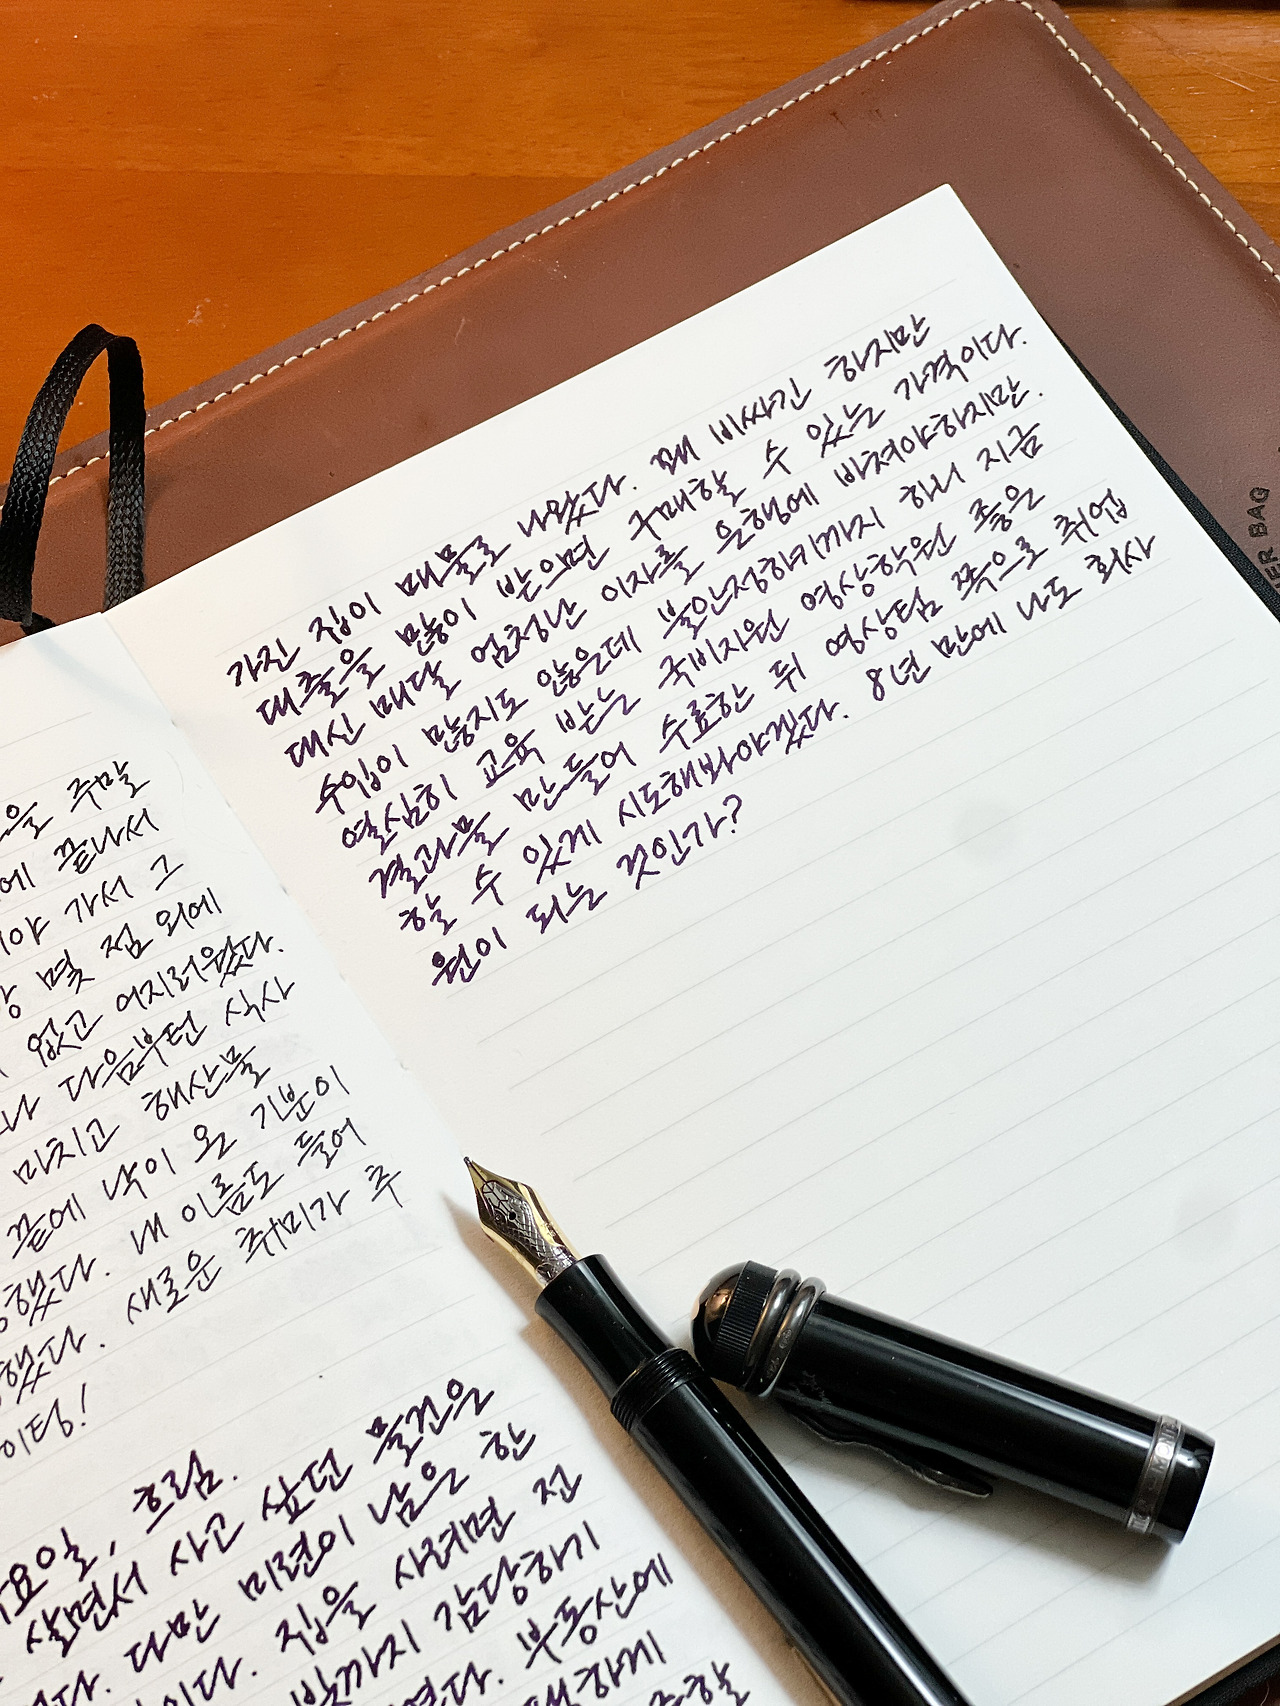 을 주말
에 끝나서
이야 가서 그
몇 점 외에
없고 어지러웠다.
다음부턴 식사
마치고 해산물
끝에 낙이 온 기분이
했다. 내 이름도 들어
했다. 새로운 취미가 추
이팅!
요일, 흐림.
살면서 사고 싶던 물건은
다만 미련이 남은 한
이다. 집을 사려면 전
빚까지 감당하기
부동산에
가진 집이 매물로 나왔다. 꽤 비싸긴 하지만
대출을 많이 받으면 구매할 수 있는 가격이다.
대신 매달 엄청난 이자를 은행에 바쳐야하지만.
수입이 많지도 않은데 불안정하기까지 하니 지금
열심히 교육 받는 국비지원 영상학원 좋은
결과물 만들어 수료한 뒤 영상팀 쪽으로 취업
할 수 있게 시도해봐야겠다. 8년 만에 나도 회사
원이 되는 것인가?
ER BAG